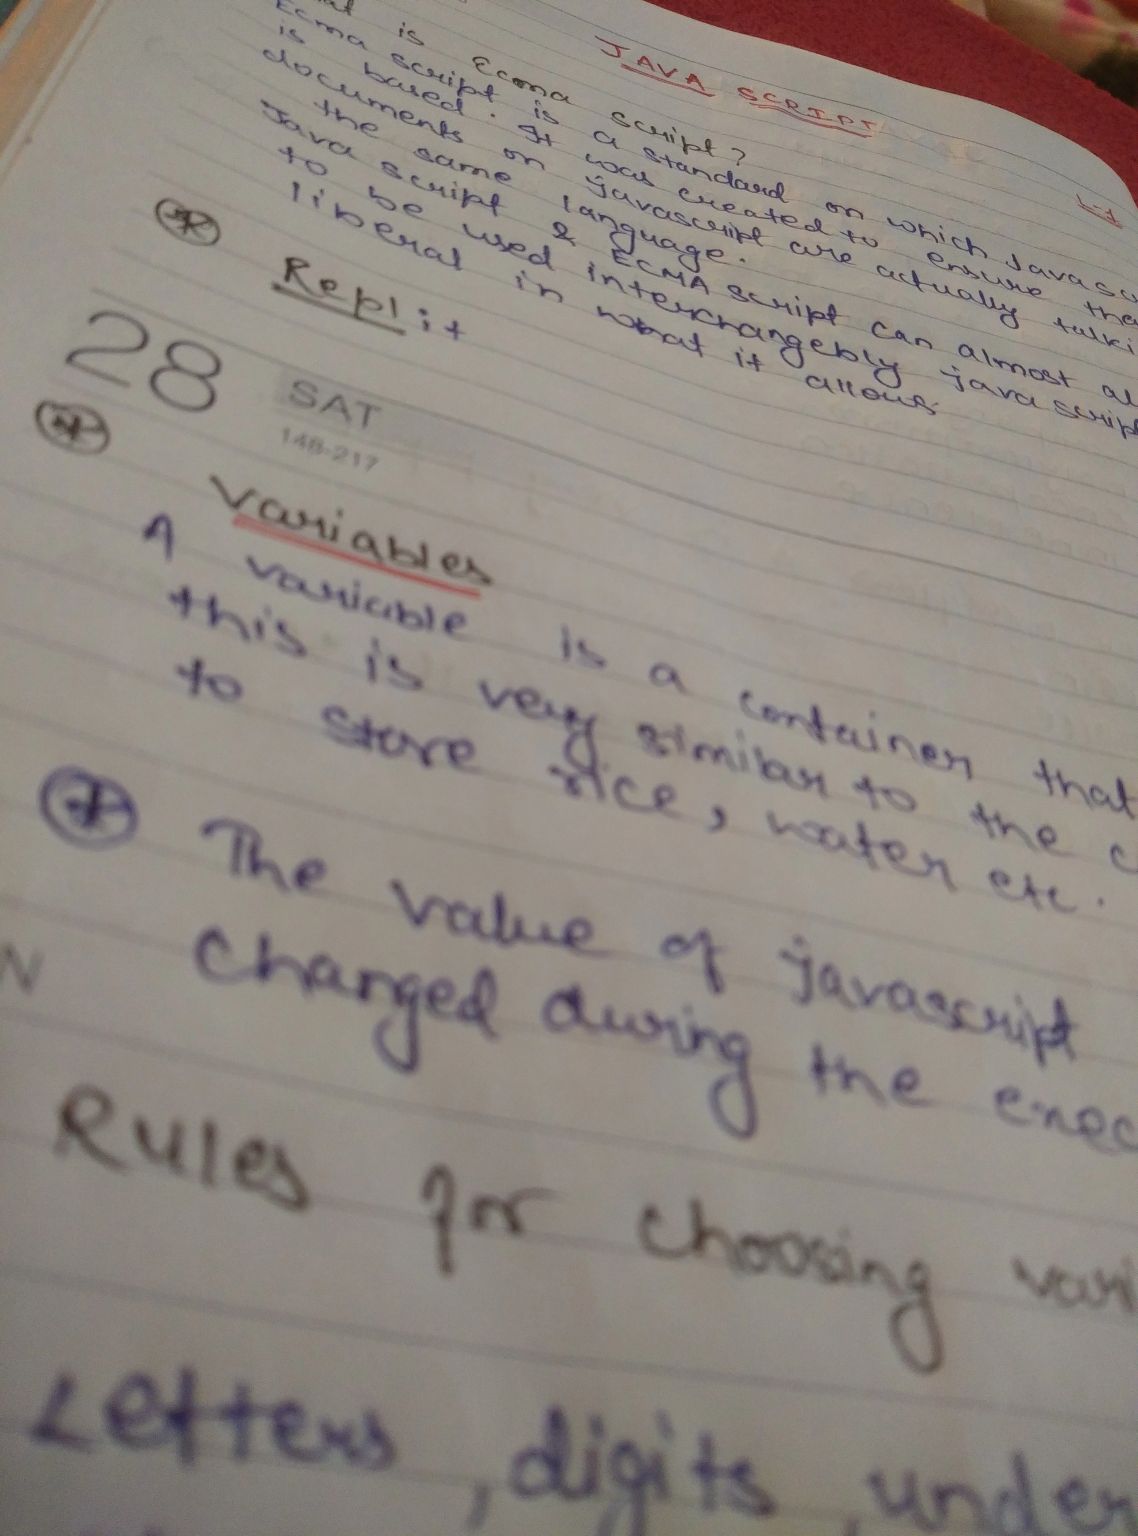 JAVA SCRIPT
L-1
is Ecma script?
Ecma script is a standard on which Javasc
is based. It was created to ensure the
documents on javascript are actually talki
the same language.
Java script & ECMA script can almost al
to be used interchangebly java script
liberal in what it allows
Repl it
28 SAT
148-217
Variables
A variable is a container that
this is very similar to the c
to store rice, water etc.
The value of javascript
changed during the exec
N
Rules for choosing vari
Letters, digits, under